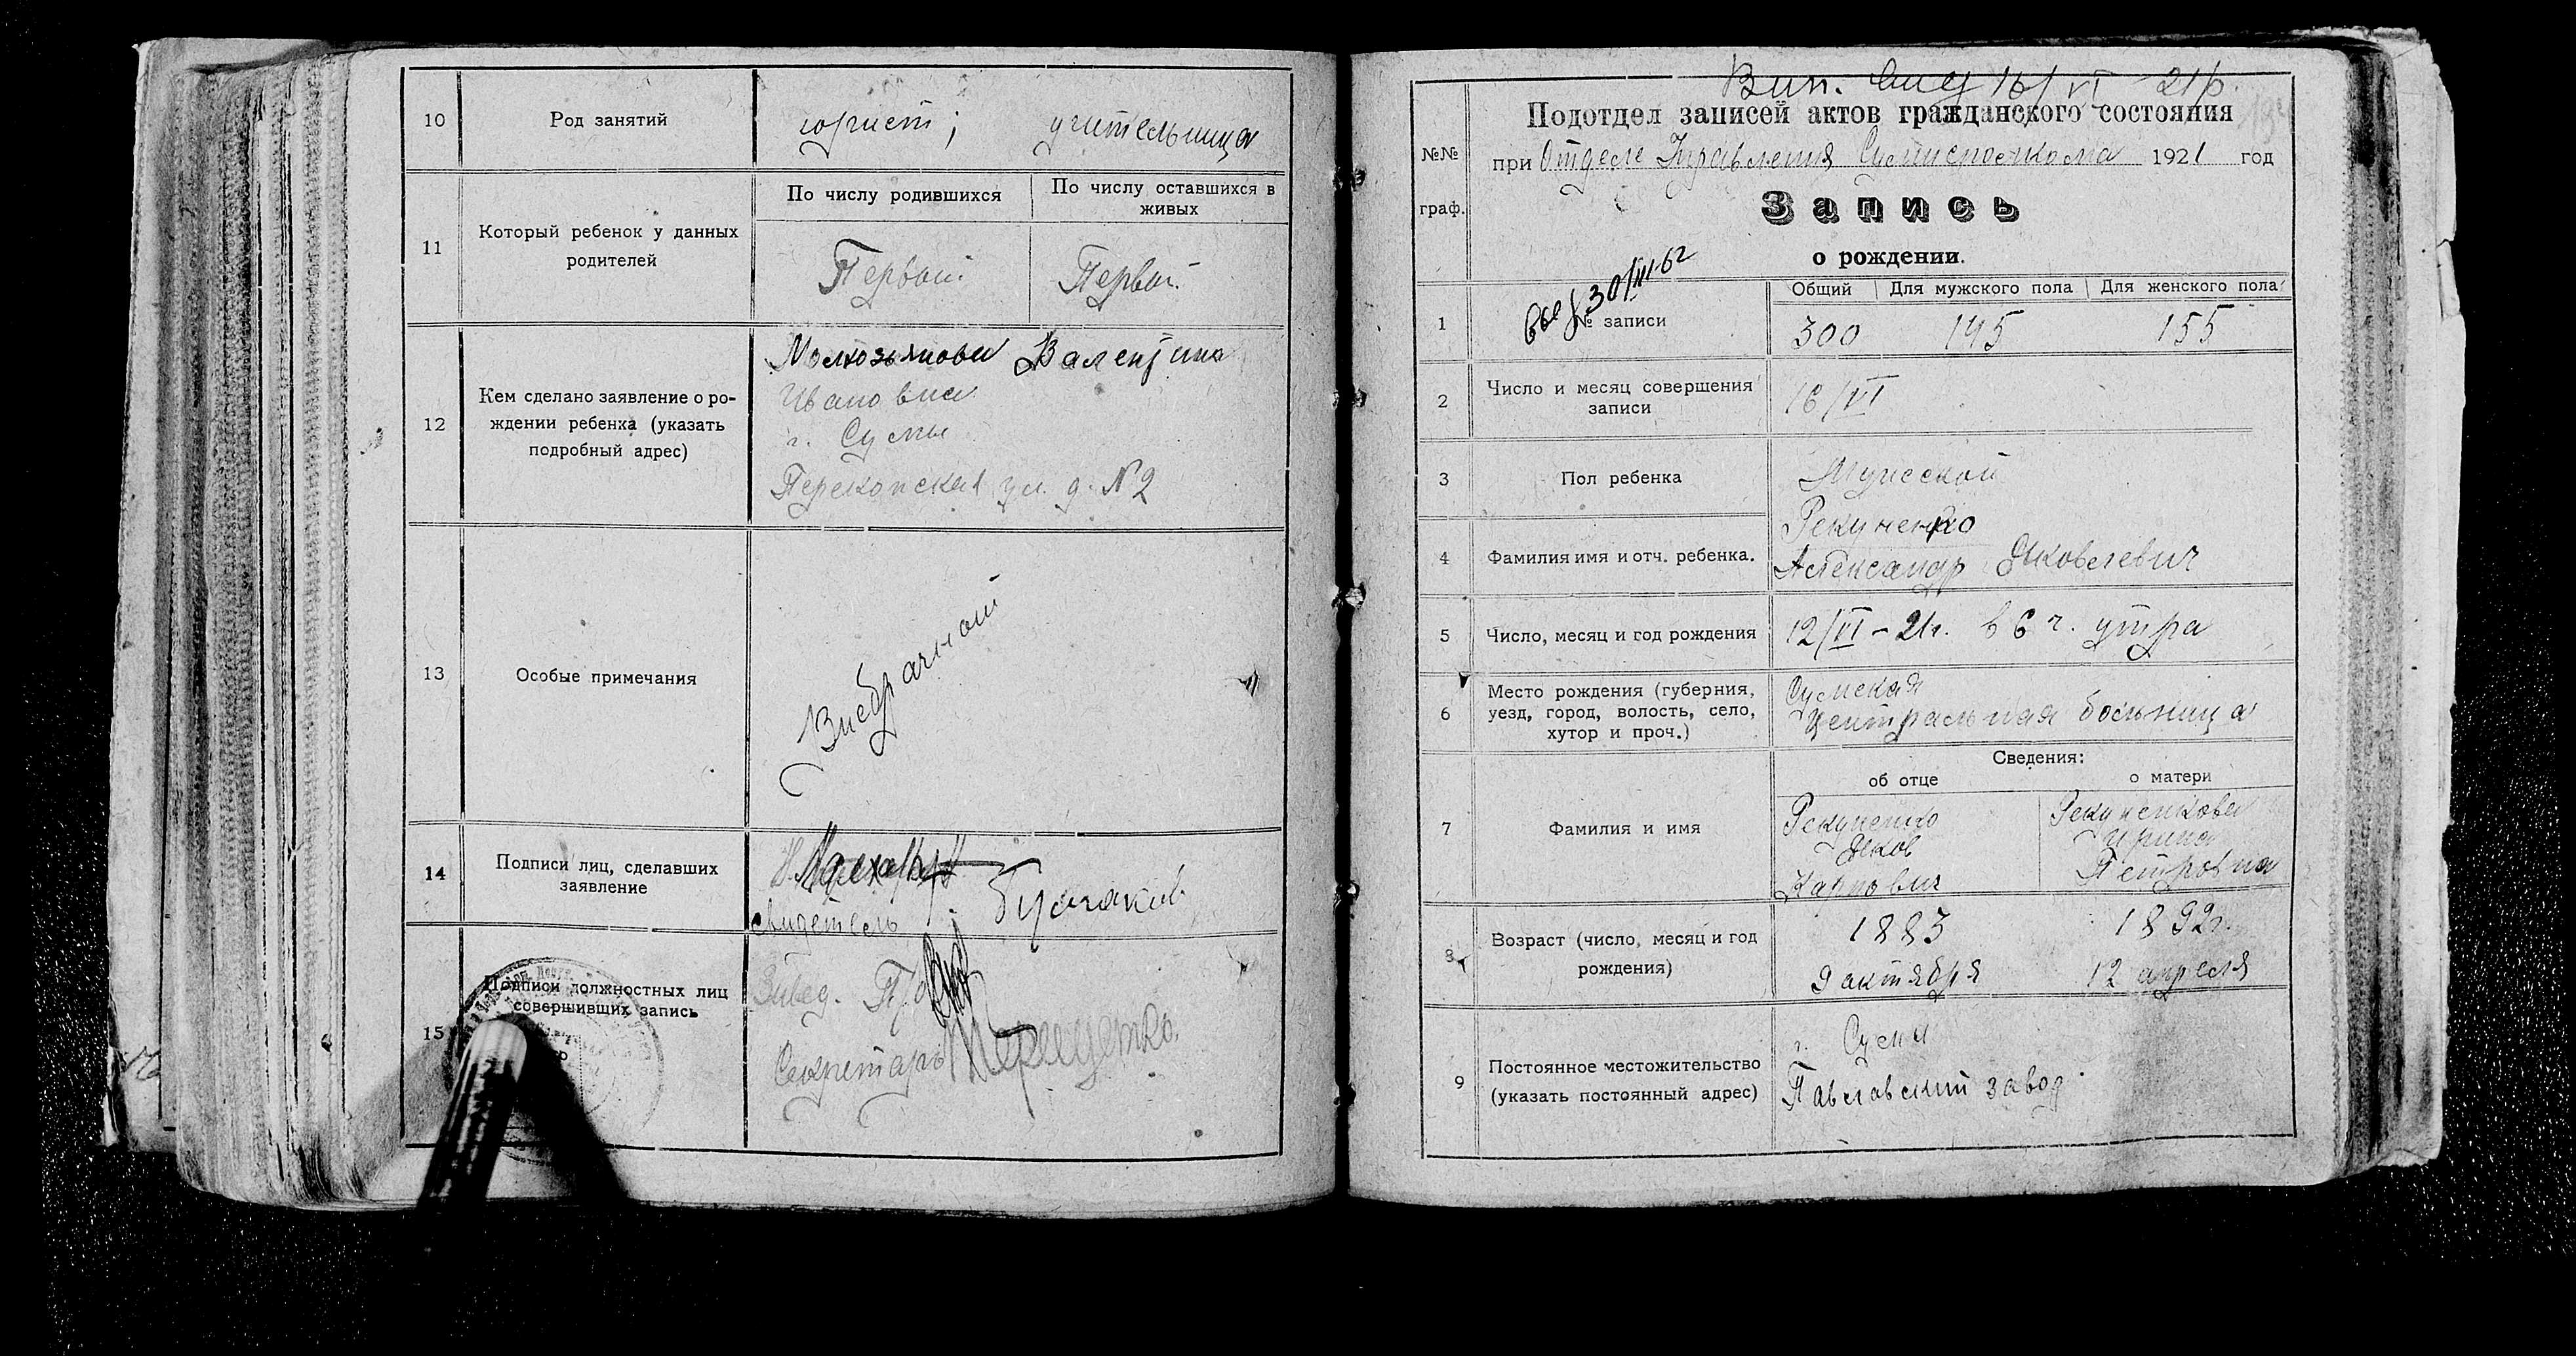 10
Род занятий
юрист; учительница
11
Который ребенок у данных
родителей
По числу родившихся
По числу оставшихся в
живых
Первый
Первый
12
Кем сделано заявление о ро-
ждении ребенка (указать
подробный адрес)
Валентина
Ивановна
г. Сумы
Перекопская ул. д. № 2
13
Особые примечания
Внебрачный
14
Подписи лиц, сделавших
заявление
свидетель
15
Подписи должностных лиц
совершивших запись
Завед.
Секретарь
Вип. 16/VI 21р.
Подотдел записей актов гражданского состояния
№№
граф.
при Отделе Управления 1921 год
Запись
о рождении.
30/III-62
1
№ записи
Общий
Для мужского пола
Для женского пола
300 145 155
2
Число и месяц совершения
записи
16/VI
3
Пол ребенка
Мужской
4
Фамилия имя и отч. ребенка.
Рекуненко
Александр Яковлевич
5
Число, месяц и год рождения
12/VI – 21г. в 6 ч. утра
6
Место рождения (губерния,
уезд, город, волость, село,
хутор и проч.)
Сумская
центральная больница
Сведения:
об отце
о матери
7
Фамилия и имя
Рекуненко
Яков
Карпович
Рекуненкова
Ирина
Петровна
8
Возраст (число, месяц и год
рождения)
1883
9 октября
1892г.
12 апреля
9
Постоянное местожительство
(указать постоянный адрес)
г. Сумы
Павловский завод